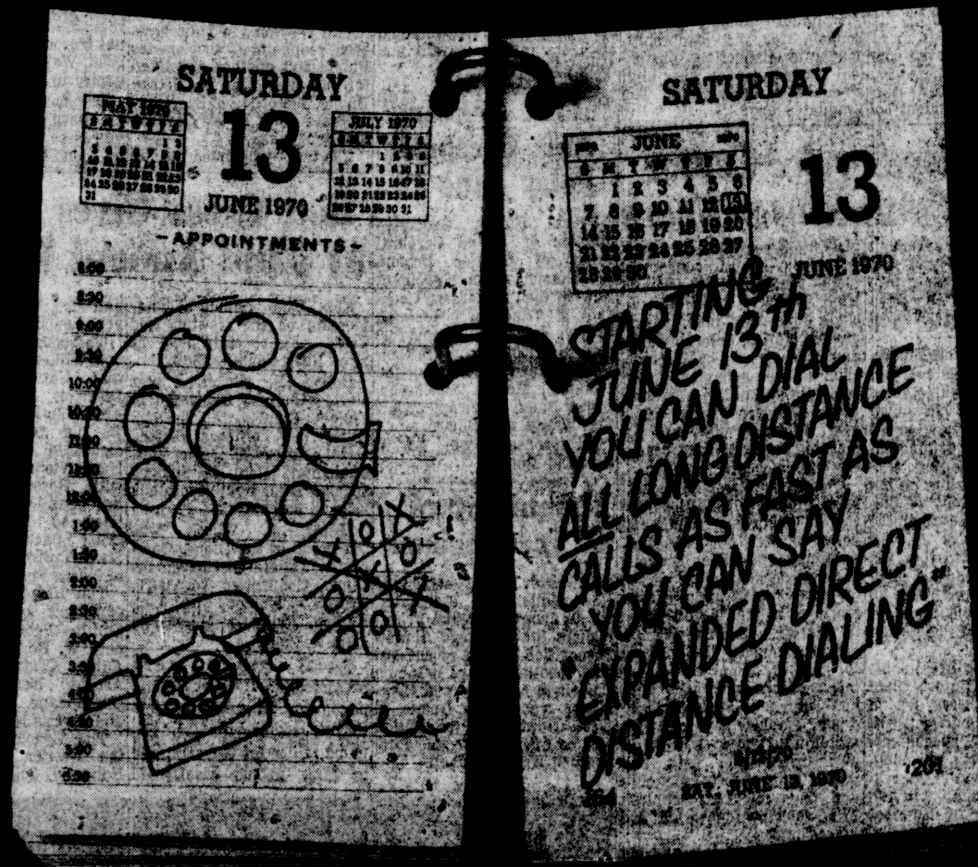 SATURDAY
MAY 1970
S M T W T F S
1 2
3 4 5 6 7 8 9
10 11 12 13 14 15 16
17 18 19 20 21 22 23
24 25 26 27 28 29 30
31
13
JUNE 1970
JULY 1970
S M T W T F S
1 2 3 4
5 6 7 8 9 10 11
12 13 14 15 16 17 18
19 20 21 22 23 24 25
26 27 28 29 30 31
-APPOINTMENTS-
8:00
8:30
9:00
9:30
10:00
10:30
11:00
12:00
1:00
1:30
2:00
2:30
3:00
3:30
4:30
5:00
5:30
X
O
X
O
X
X
O
O
O
SATURDAY
JUNE
S M T W T F S
1 2 3 4 5 6
7 8 9 10 11 12 13
14 15 16 17 18 19 20
21 22 23 24 25 26 27
28 29 30
13
JUNE 1970
STARTING
JUNE 13th
YOU CAN DIAL
ALL LONG DISTANCE
CALLS AS FAST AS
YOU CAN SAY
"EXPANDED DIRECT
DISTANCE DIALING"
SAT, JUNE 13, 1970
201